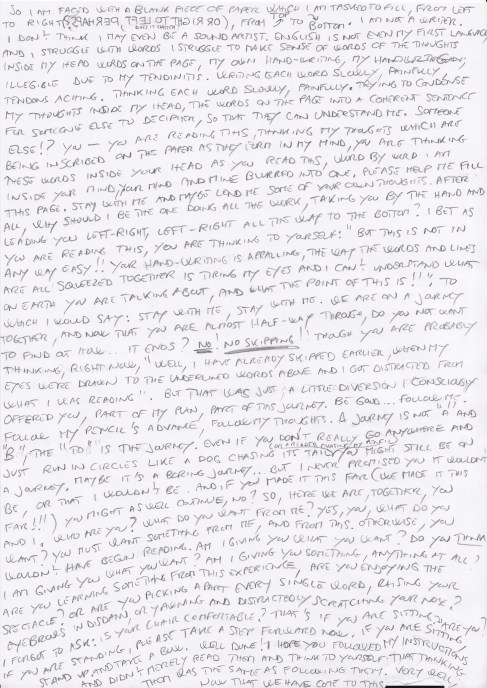 SO I AM FACED WITH A BLANK PIECE OF PAPER WHICH I AM TASKED TO FILL, FROM LEFT
TO RIGHT (OR RIGHT TO LEFT, PERHAPS), FROM TOP TO BOTTOM. I AM NOT A WRITER.
I DON'T THINK I MAY EVEN BE A SOUND ARTIST. ENGLISH IS NOT EVEN MY FIRST LANGUAGE
AND I STRUGGLE WITH WORDS I STRUGGLE TO MAKE SENSE OF WORDS OF THE THOUGHTS
INSIDE MY HEAD WORDS ON THE PAGE, MY OWN HAND-WRITING, MY HANDWRITING
ILLEGIBLE DUE TO MY TENDINITIS. WRITING EACH WORD SLOWLY, PAINFULLY,
TENDONS ACHING. THINKING EACH WORD SLOWLY, PAINFULLY. TRYING TO CONDENSE
MY THOUGHTS INSIDE MY HEAD, THE WORDS ON THE PAGE INTO A COHERENT SENTENCE
FOR SOMEONE ELSE TO DECIPHER, SO THAT THEY CAN UNDERSTAND ME. SOMEONE
ELSE!? YOU – YOU ARE READING THIS, THINKING MY THOUGHTS WHICH ARE
BEING INSCRIBED ON THE PAPER AS THEY FORM IN MY MIND, YOU ARE THINKING
THESE WORDS INSIDE YOUR HEAD AS YOU READ THIS, WORD BY WORD I AM
INSIDE YOUR MIND, YOUR MIND AND MINE BLURRED INTO ONE. PLEASE HELP ME FILL
THIS PAGE. STAY WITH ME AND MAYBE LEND ME SOME OF YOUR OWN THOUGHTS. AFTER
ALL, WHY SHOULD I BE THE ONE DOING ALL THE WORK, TAKING YOU BY THE HAND AND
LEADING YOU LEFT-RIGHT, LEFT-RIGHT ALL THE WAY TO THE BOTTOM? I BET AS
YOU ARE READING THIS, YOU ARE THINKING TO YOURSELF: "BUT THIS IS NOT IN
ANY WAY EASY!! YOUR HAND-WRITING IS APPALLING, THE WAY THE WORDS AND LINES
ARE ALL SQUEEZED TOGETHER IS TIRING MY EYES AND I CAN'T UNDERSTAND WHAT
ON EARTH YOU ARE TALKING ABOUT, AND WHAT THE POINT OF THIS IS!!", TO
WHICH I WOULD SAY: STAY WITH ME, STAY WITH ME. WE ARE ON A JOURNEY
TOGETHER, AND NOW THAT YOU ARE ALMOST HALF-WAY THROUGH, DO YOU NOT WANT
TO FIND OUT HOW... IT ENDS? NO! NO SKIPPING! THOUGH YOU ARE PROBABLY
THINKING, RIGHT NOW, "WELL, I HAVE ALREADY SKIPPED EARLIER, WHEN MY
EYES WERE DRAWN TO THE UNDERLINED WORDS ABOVE AND I GOT DISTRACTED FROM
WHAT I WAS READING". BUT THAT WAS JUST A LITTLE DIVERSION I CONSCIOUSLY
OFFERED YOU, PART OF MY PLAN, PART OF THIS JOURNEY. BE GOOD... FOLLOW ME.
FOLLOW MY PENCIL'S ADVANCE, FOLLOW MY THOUGHTS. A JOURNEY IS NOT "A AND
B", THE "TO" IS THE JOURNEY. EVEN IF YOU DON'T REALLY GO ANYWHERE AND
JUST RUN IN CIRCLES LIKE A DOG CHASING ITS TAIL, YOU MIGHT STILL BE ON
A JOURNEY. MAYBE IT'S A BORING JOURNEY... BUT I NEVER PROMISED YOU IT WOULDN'T
BE, OR THAT I WOULDN'T BE. AND IF YOU MADE IT THIS FAR (WE MADE IT THIS
FAR!!!) YOU MIGHT AS WELL CONTINUE, NO? SO, HERE WE ARE, TOGETHER, YOU
AND I. WHO ARE YOU? WHAT DO YOU WANT FROM ME? YES, YOU, WHAT DO YOU
WANT? YOU MUST WANT SOMETHING FROM ME, AND FROM THIS. OTHERWISE, YOU
WOULDN'T HAVE BEGUN READING. AM I GIVING YOU WHAT YOU WANT? DO YOU THINK
I AM GIVING YOU WHAT YOU WANT? AM I GIVING YOU SOMETHING, ANYTHING AT ALL?
ARE YOU LEARNING SOMETHING FROM THIS EXPERIENCE, ARE YOU ENJOYING THE
SPECTACLE? OR ARE YOU PICKING APART EVERY SINGLE WORD, RAISING YOUR
EYEBROWS IN DISDAIN, OR YAWNING AND DISTRACTEDLY SCRATCHING YOUR NOSE?
I FORGOT TO ASK: IS YOUR CHAIR COMFORTABLE? THAT'S IF YOU ARE SITTING, ARE YOU?
IF YOU ARE STANDING, PLEASE TAKE A STEP FORWARD NOW. IF YOU ARE SITTING,
STAND UP AND TAKE A BOW. WELL DONE! I HOPE YOU FOLLOWED MY INSTRUCTIONS
AND DIDN'T MERELY READ THEM AND THINK TO YOURSELF THAT THINKING
THEM WAS THE SAME AS FOLLOWING THEM. VERY WELL,
NOW THAT WE HAVE COME TO THIS